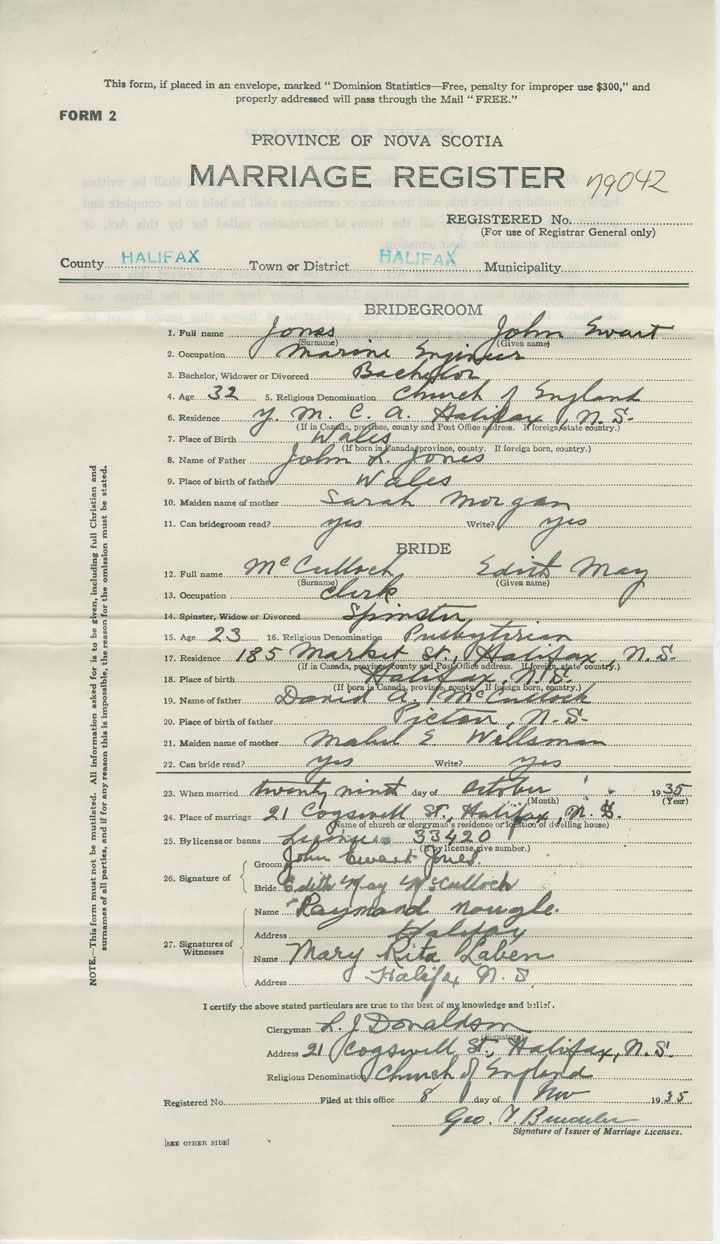 This form, if placed in an envelope, marked "Dominion Statistics—Free, penalty for improper use $300," and
properly addressed will pass through the Mail "FREE."
FORM 2
PROVINCE OF NOVA SCOTIA
MARRIAGE REGISTER 79042
REGISTERED No.
(For use of Registrar General only)
County HALIFAX Town or District HALIFAX Municipality
BRIDEGROOM
1. Full name Jones John Ewart
(Surname) (Given name)
2. Occupation Marine Engineer
3. Bachelor, Widower or Divorced Bachelor
4. Age 32 5. Religious Denomination Church of England
6. Residence Y. M. C. A. Halifax, N.S.
(If in Canada, province, county and Post Office address. If foreign, state country.)
7. Place of Birth Wales
(If born in Canada, province, county. If foreign born, country.)
8. Name of Father John L. Jones
9. Place of birth of father Wales
10. Maiden name of mother Sarah Morgan
11. Can bridegroom read? yes Write? yes
BRIDE
12. Full name McCulloch Edith May
(Surname) (Given name)
13. Occupation Clerk
14. Spinster, Widow or Divorced Spinster
15. Age 23 16. Religious Denomination Presbyterian
17. Residence 185 Market St., Halifax, N.S.
(If in Canada, province, county and Post Office address. If foreign, state country.)
18. Place of birth Halifax, N.S.
(If born in Canada, province, county. If foreign born, country.)
19. Name of father David A. McCulloch
20. Place of birth of father Pictou, N.S.
21. Maiden name of mother Mabel E. Wellsman
22. Can bride read? yes Write? yes
23. When married twenty ninth day of October 1935
(Month) (Year)
24. Place of marriage 21 Cogswell St., Halifax, N.S.
(Name of church or clergyman's residence or location of dwelling house)
25. By license or banns License 33420
(If by license, give number.)
26. Signature of
Groom John Ewart Jones
Bride Edith May McCulloch
27. Signatures of Witnesses
Name Raymond Nougle
Address Halifax
Name Mary Rita Laben
Address Halifax N.S.
I certify the above stated particulars are true to the best of my knowledge and belief.
Clergyman L. J. Donaldson
(Signature)
Address 21 Cogswell St., Halifax, N.S.
Religious Denomination Church of England
Registered No. Filed at this office 8 day of Nov 1935
Geo. T.
Signature of Issuer of Marriage Licenses.
[SEE OTHER SIDE]
NOTE.—This form must not be mutilated. All information asked for is to be given, including full Christian and
surnames of all parties, and if for any reason this is impossible, the reason for the omission must be stated.